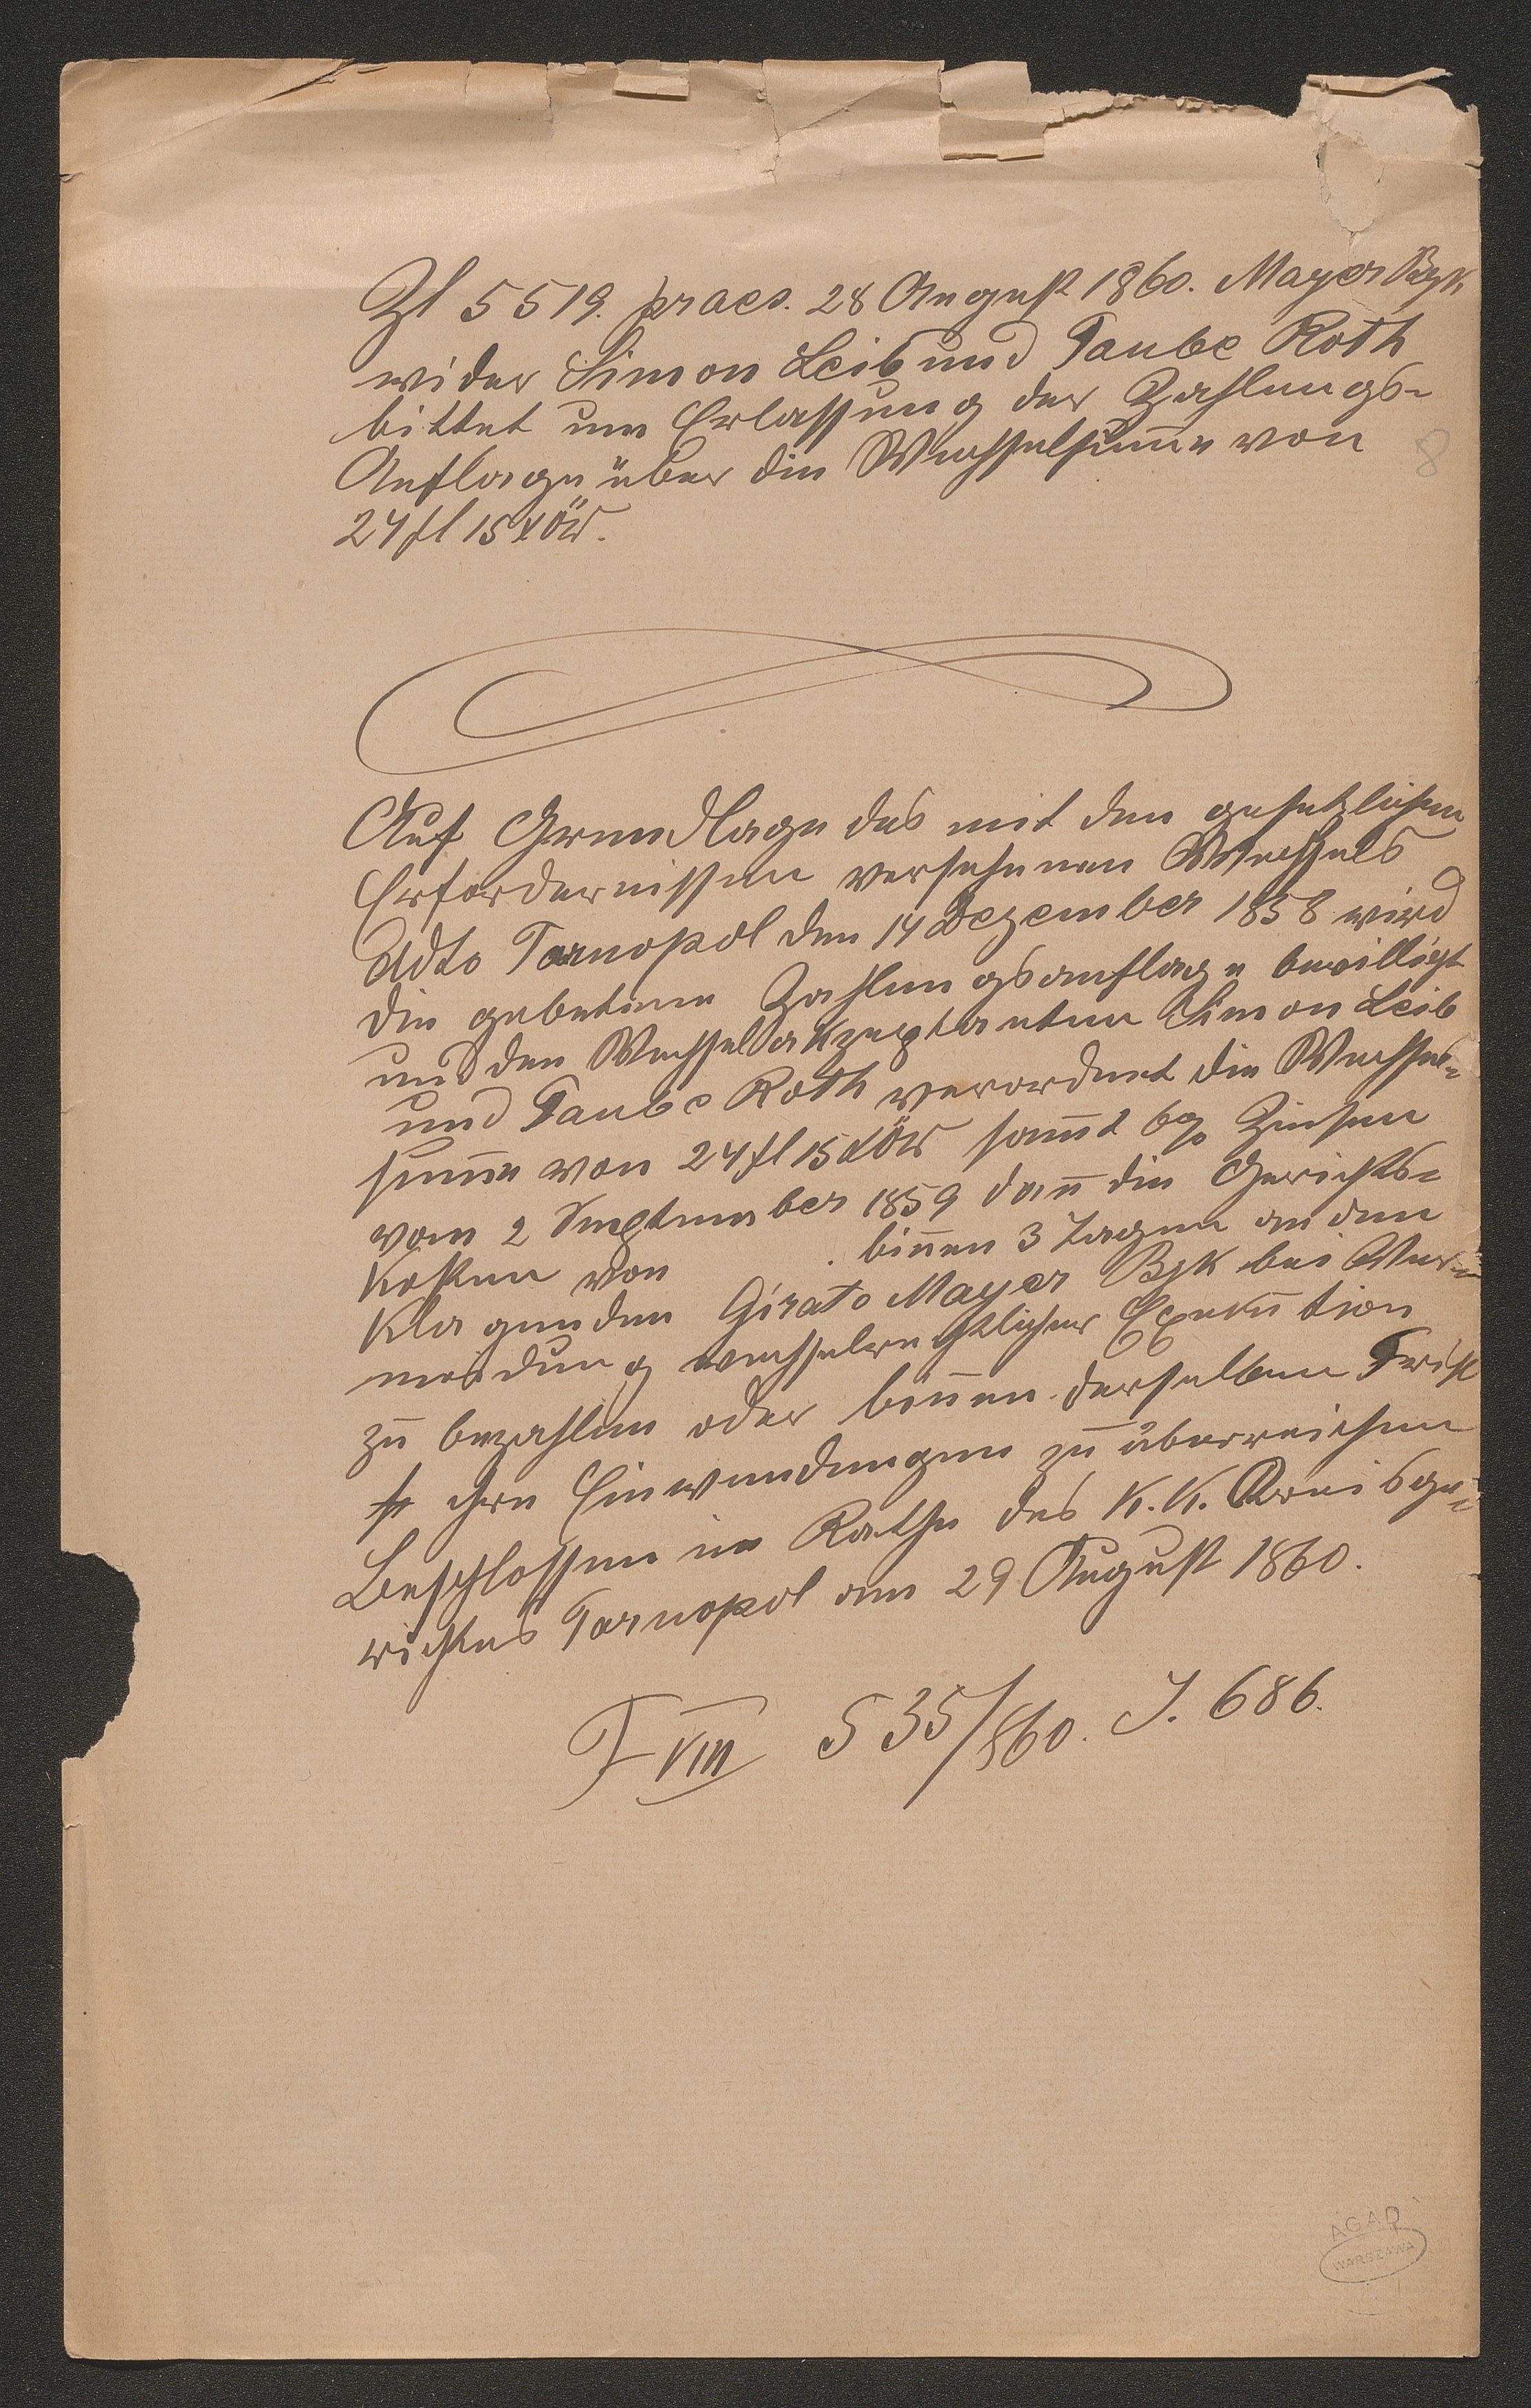 Zl 5519. praes. 28 August 1860. Mayer Byk
wider Simon Leib und Taube Roth
bittet um Erlassung der Zahlungs-
Auflage über die Wechselsum̄e von
8
24 fl 15 x ÖW.
Auf Grundlage des mit den gesetzlichen
Erfordernissen versehenen Wechsels
ddto Tarnopol den 14 Dezember 1858 wird
die gebetene Zahlungsauflage bewilligt
und den Wechselakzeptanten Simon Leib
und Taube Roth verordnet die Wechsel-
sum̄e von 24 fl 15 x ÖW sam̄t 6% Zinsen
vom 2 September 1859 dan̄ die Gerichts-
kosten von . bin̄en 3 Tagen an den
klagenden Girato Mayer Byk bei Ver-
meidung wechselrechtlicher Exekution
zu bezahlen oder bin̄en derselben Frist
ihre Einwendungen zu überreichen
Beschlossen im Rathe des K. K. Kreisge-
richtes Tarnopol am 29 August 1860.
F VIII S 35/860. J. 686.
AGAD
WARSZAWA